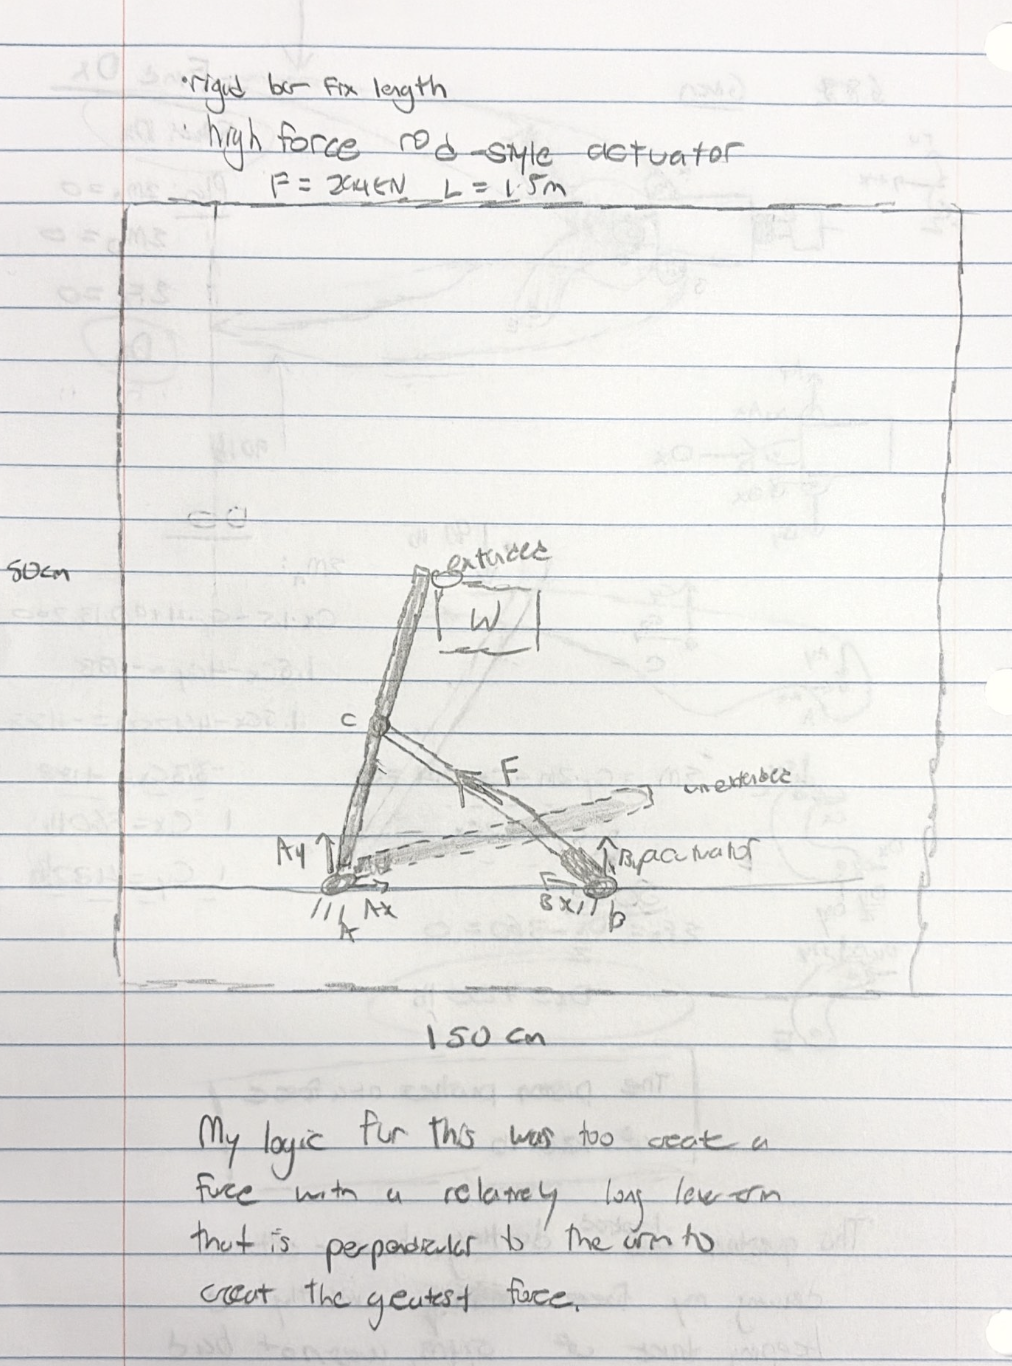 • rigid bar fix length
• high force rod-style actuator
F = 244KN L = 1.5m
50cm
extended
W
C
F
unextended
Ay
By actuator
Ax
Bx
A
b
150 cm
My logic fur this was too creat a
force with a relatively long lever arm
that is perpendicular to the arm to
creat the greatest force.